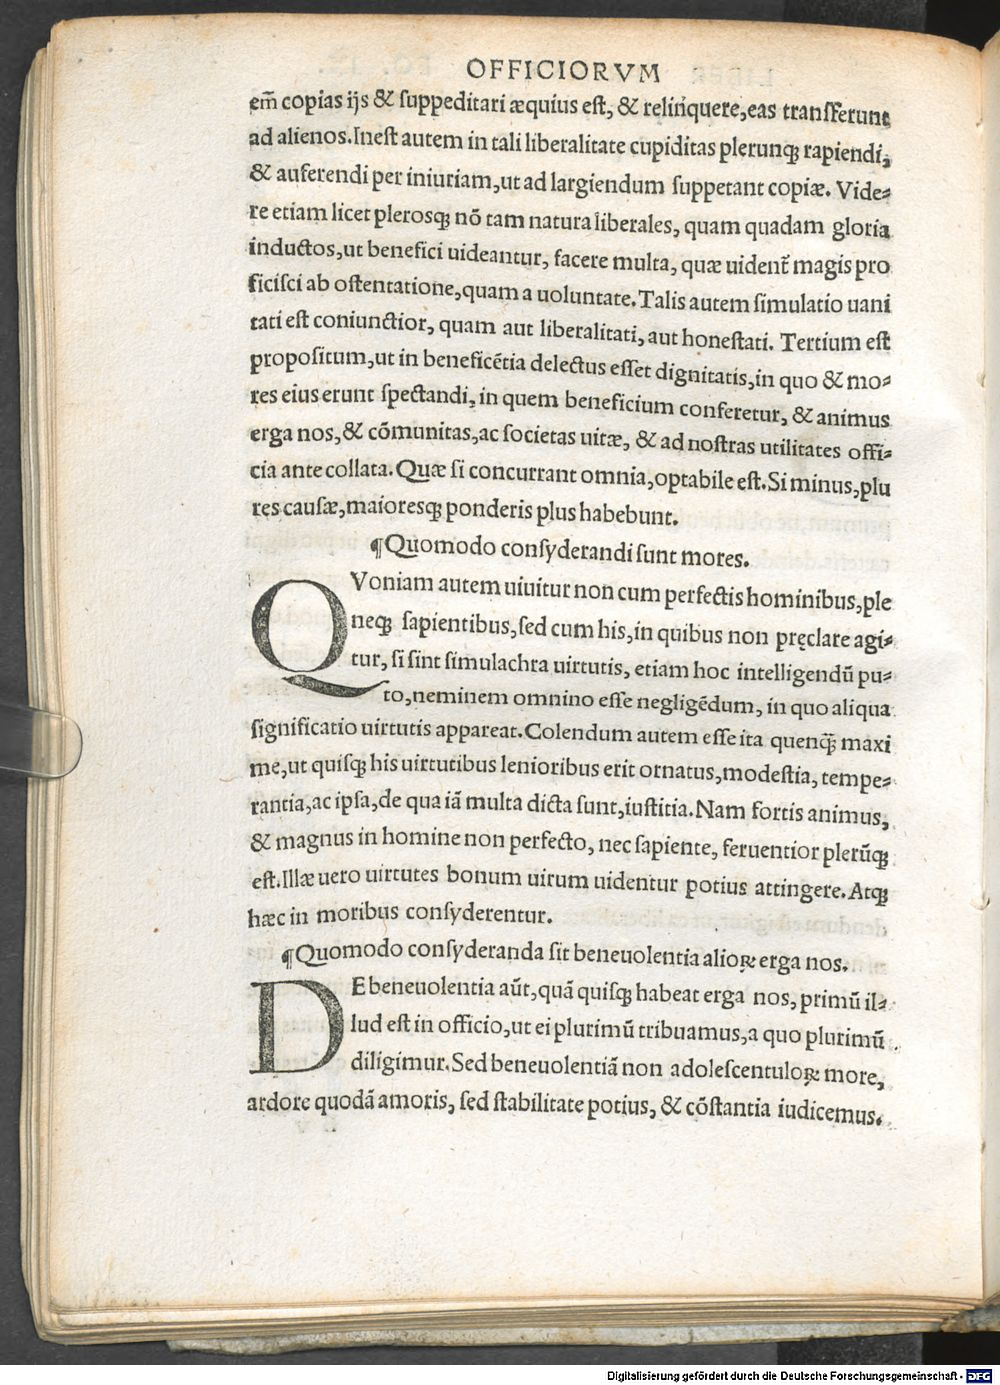 OFFICIORVM
em̃ copias ijs & ſuppeditari æquius eſt, & relinquere, eas tranſferunt
ad alienos. Ineſt autem in tali liberalitate cupiditas plerunqꝫ rapiendi,
& auferendi per iniuriam, ut ad largiendum ſuppetant copiæ. Vide-
re etiam licet plerosqꝫ nõ tam natura liberales, quam quadam gloria
inductos, ut benefici uideantur, facere multa, quæ uident̃ magis pro
ficiſci ab oſtentatione, quam a uoluntate. Talis autem ſimulatio uani
tati eſt coniunctior, quam aut liberalitati, aut honeſtati. Tertium eſt
propoſitum, ut in beneficẽtia delectus eſſet dignitatis, in quo & mo-
res eius erunt ſpectandi, in quem beneficium conferetur, & animus
erga nos, & cõmunitas, ac ſocietas uitæ, & ad noſtras utilitates offi-
cia ante collata. Quæ ſi concurrant omnia, optabile eſt. Si minus, plu
res cauſæ, maioresqꝫ ponderis plus habebunt.
¶Quomodo conſyderandi ſunt mores.
QVoniam autem uiuitur non cum perfectis hominibus, ple
neqꝫ ſapientibus, ſed cum his, in quibus non pręclare agi-
tur, ſi ſint ſimulachra uirtutis, etiam hoc intelligendũ pu-
to, neminem omnino eſſe negligẽdum, in quo aliqua
ſignificatio uirtutis appareat. Colendum autem eſſe ita quenq̃ maxi
me, ut quiſqꝫ his uirtutibus lenioribus erit ornatus, modeſtia, tempe-
rantia, ac ipſa, de qua iã multa dicta ſunt, iuſtitia. Nam fortis animus,
& magnus in homine non perfecto, nec ſapiente, feruentior plerũqꝫ
eſt. Illæ uero uirtutes bonum uirum uidentur potius attingere. Atqꝫ
hæc in moribus conſyderentur.
¶Quomodo conſyderanda ſit beneuolentia alioꝝ erga nos.
DE beneuolentia aũt, quã quiſqꝫ habeat erga nos, primũ il-
lud eſt in officio, ut ei plurimũ tribuamus, a quo plurimũ
diligimur. Sed beneuolentiã non adoleſcentuloꝝ more,
ardore quodã amoris, ſed ſtabilitate potius, & cõſtantia iudicemus.
Digitalisierung gefördert durch die Deutsche Forschungsgemeinschaft - DFG